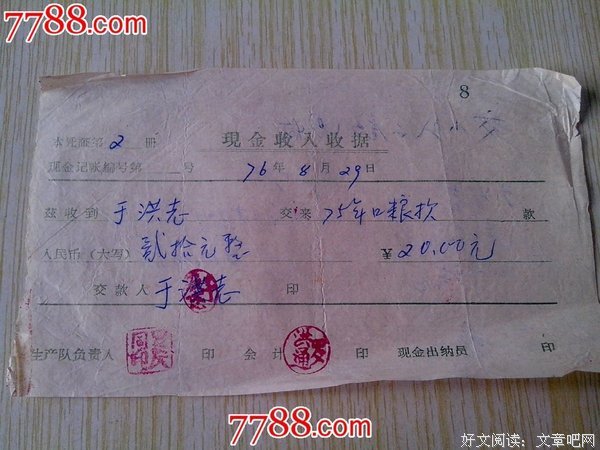 7788.com
8
現金收入收据
本凭証第2册
现金记账编号第 号 76年8月29日
兹收到 于洪志 交来 75年口粮款 款
人民币（大写）贰拾元整 ￥20.00元
交款人 于洪志 印
生产队负责人 印 会计 印 现金出纳员 印
7788.com
好文阅读：文章吧网